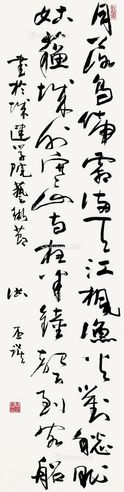 月落烏啼霜滿天江楓漁火對愁眠
姑蘇城外寒山寺夜半鐘聲到客船
書於城建學院藝術節 洪